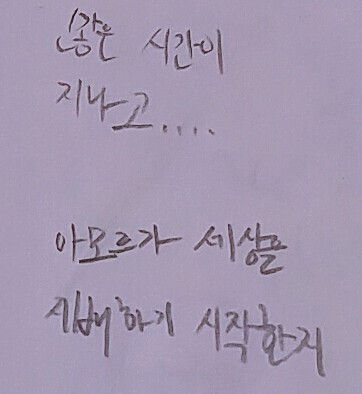 많은 시간이
지나고....
아모르가 세상을
지배하기 시작한지